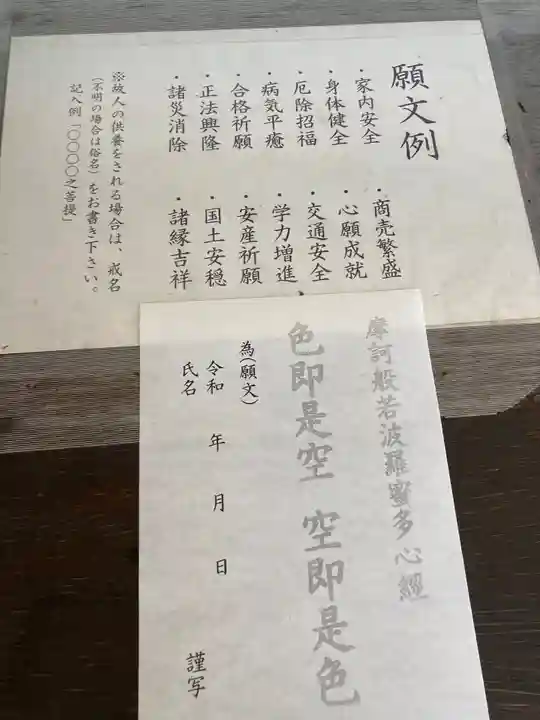 願文例
・家内安全
・身体健全
・厄除招福
・病気平癒
・合格祈願
・正法興隆
・諸災消除
・商売繁盛
・心願成就
・交通安全
・学力増進
・安産祈願
・国土安穏
・諸縁吉祥
※故人の供養をされる場合は、戒名
（不明の場合は俗名）をお書き下さい。
記入例「〇〇〇〇之菩提」
摩訶般若波羅蜜多心經
色即是空 空即是色
為(願文)
令和 年 月 日
氏名 謹写